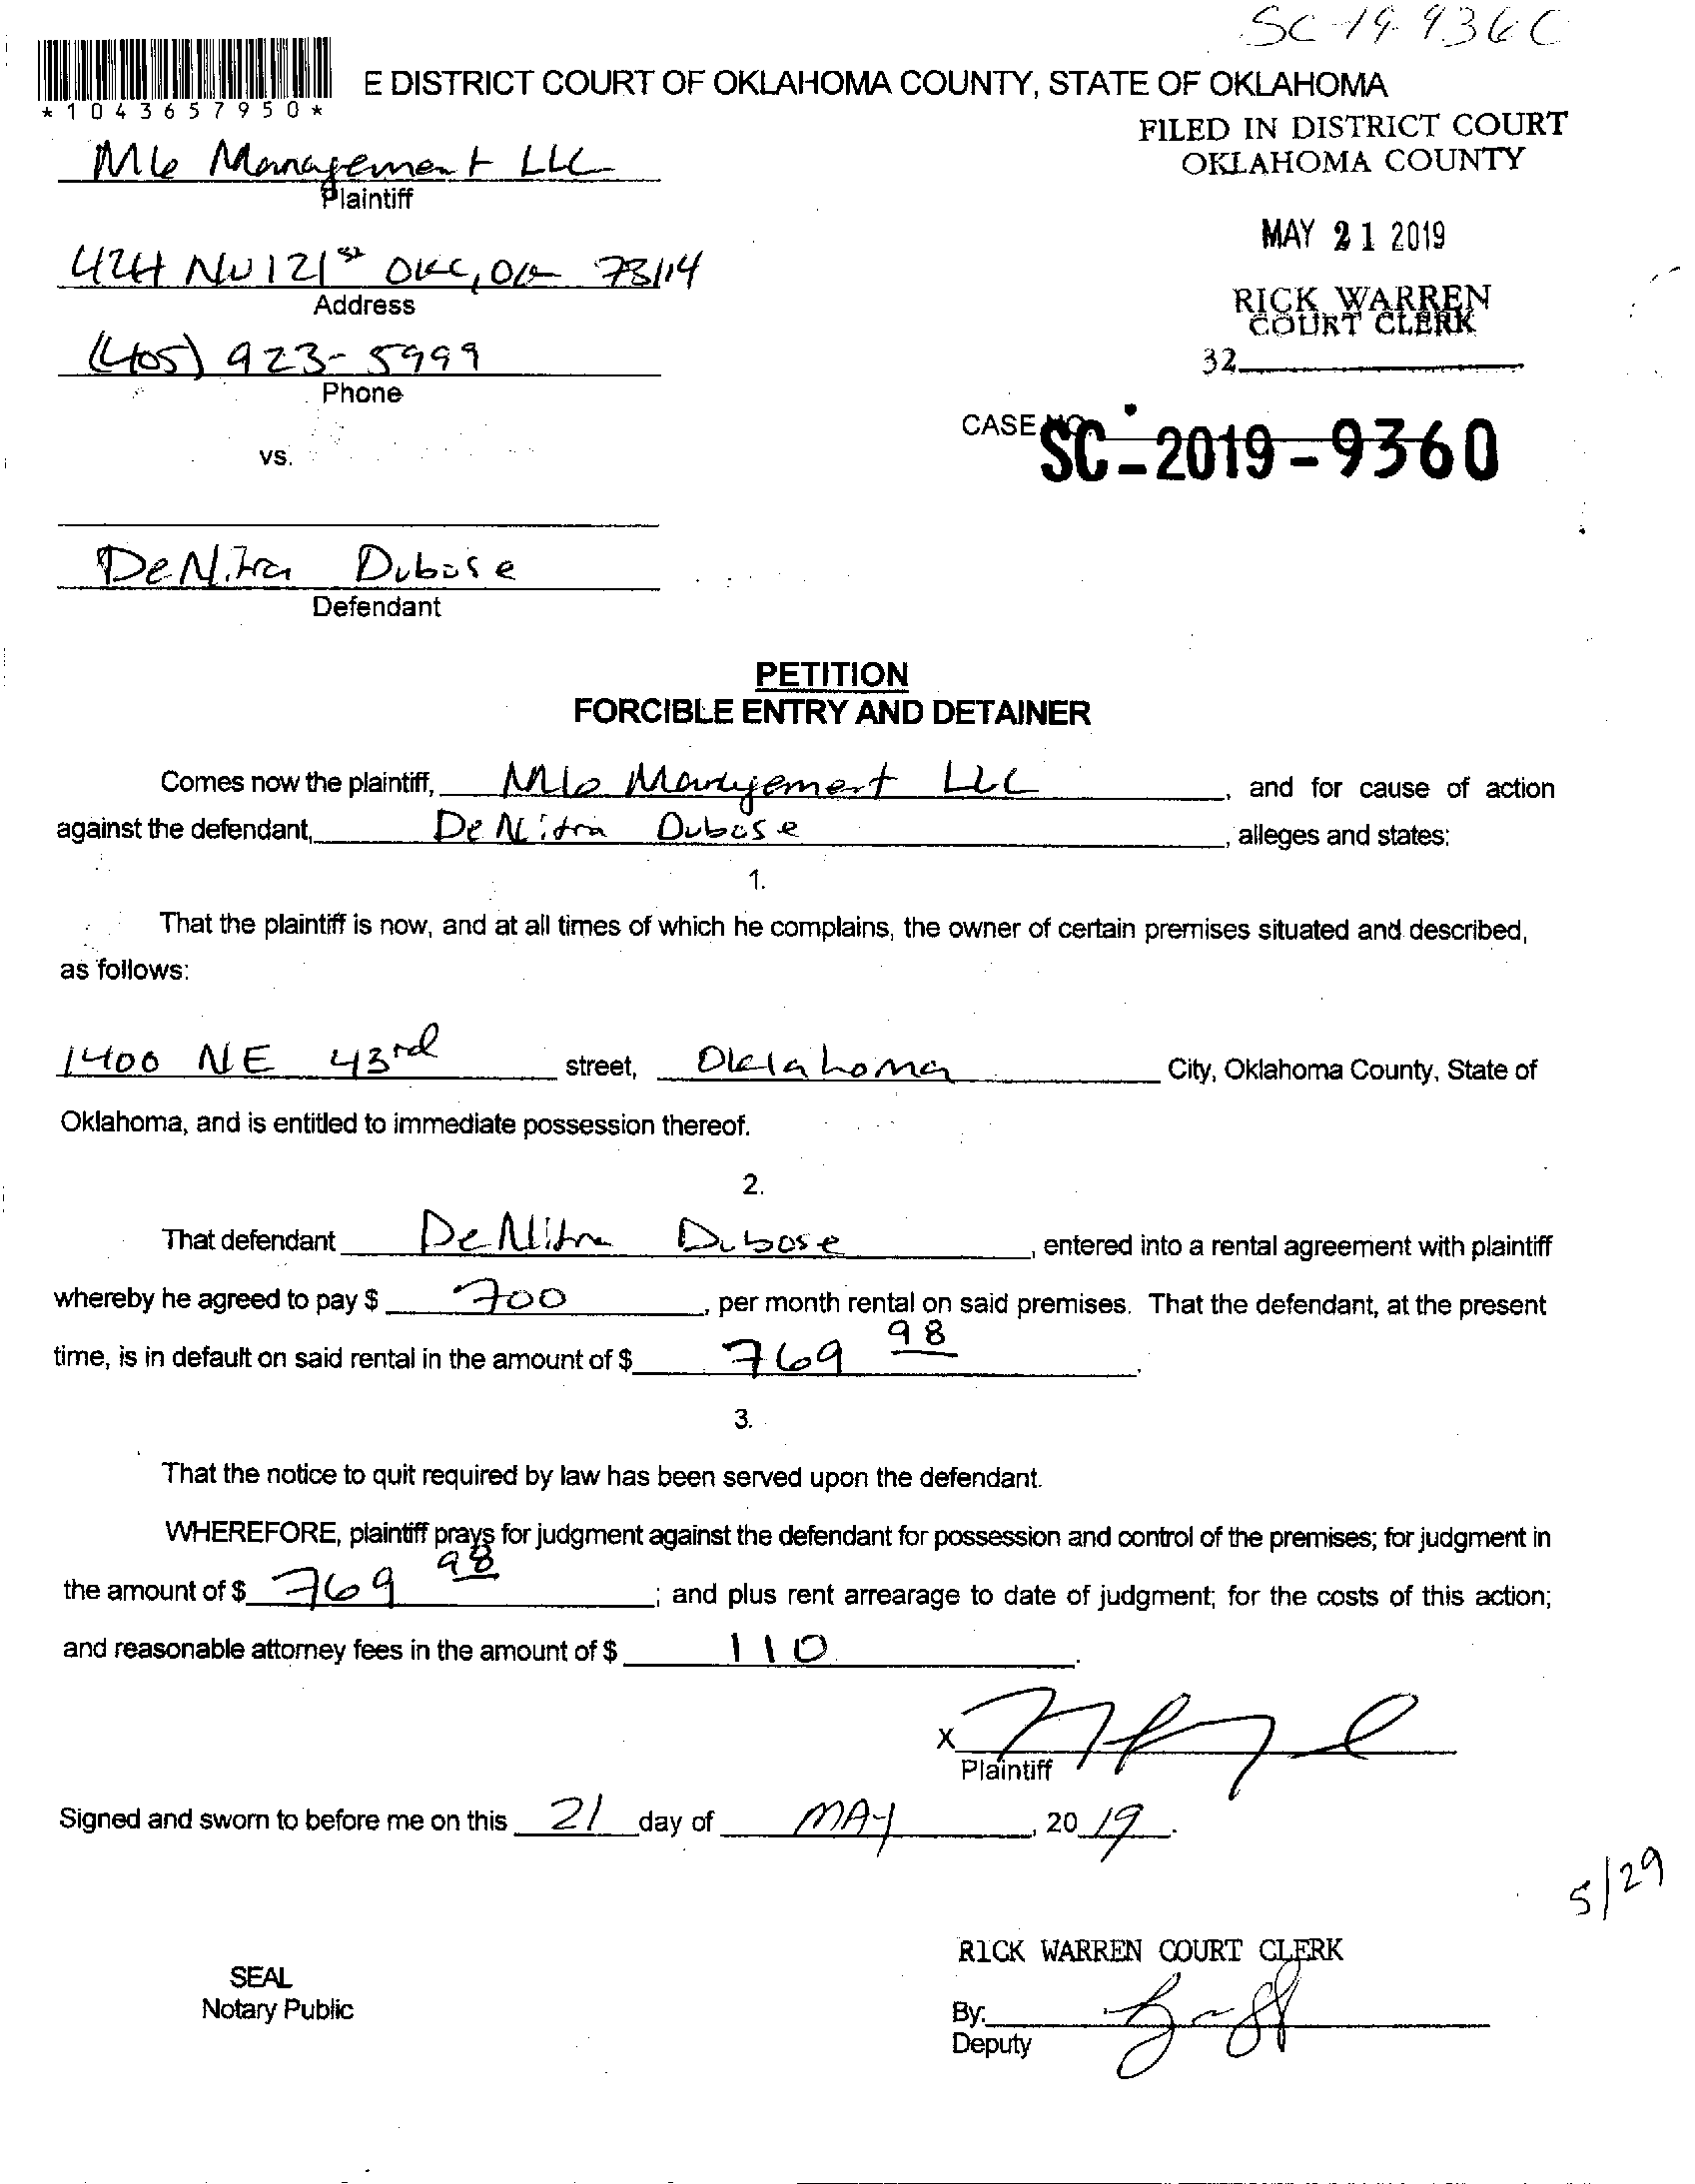 SC-19-9360
*1043657950*
E DISTRICT COURT OF OKLAHOMA COUNTY, STATE OF OKLAHOMA
FILED IN DISTRICT COURT
OKLAHOMA COUNTY
Management LLC
Plaintiff
MAY 21 2019
424 NW 121st OKC, OK 73114
Address
RICK WARREN
COURT CLERK
(405) 923-5999
Phone
32
CASE NO.
SC-2019-9360
vs.
DeNitra Dubose
Defendant
PETITION
FORCIBLE ENTRY AND DETAINER
Comes now the plaintiff, Management LLC, and for cause of action
against the defendant, DeNitra Dubose, alleges and states:
1.
That the plaintiff is now, and at all times of which he complains, the owner of certain premises situated and described,
as follows:
1400 NE 43rd street, Oklahoma City, Oklahoma County, State of
Oklahoma, and is entitled to immediate possession thereof.
2.
That defendant DeNitra Dubose, entered into a rental agreement with plaintiff
whereby he agreed to pay $ 700, per month rental on said premises. That the defendant, at the present
time, is in default on said rental in the amount of $ 769 98.
3.
That the notice to quit required by law has been served upon the defendant.
WHEREFORE, plaintiff prays for judgment against the defendant for possession and control of the premises; for judgment in
the amount of $ 769 98; and plus rent arrearage to date of judgment; for the costs of this action;
and reasonable attorney fees in the amount of $ 110.
X
Plaintiff
Signed and sworn to before me on this 21 day of MAY, 20 19.
5/29
RICK WARREN COURT CLERK
SEAL
Notary Public
By:
Deputy